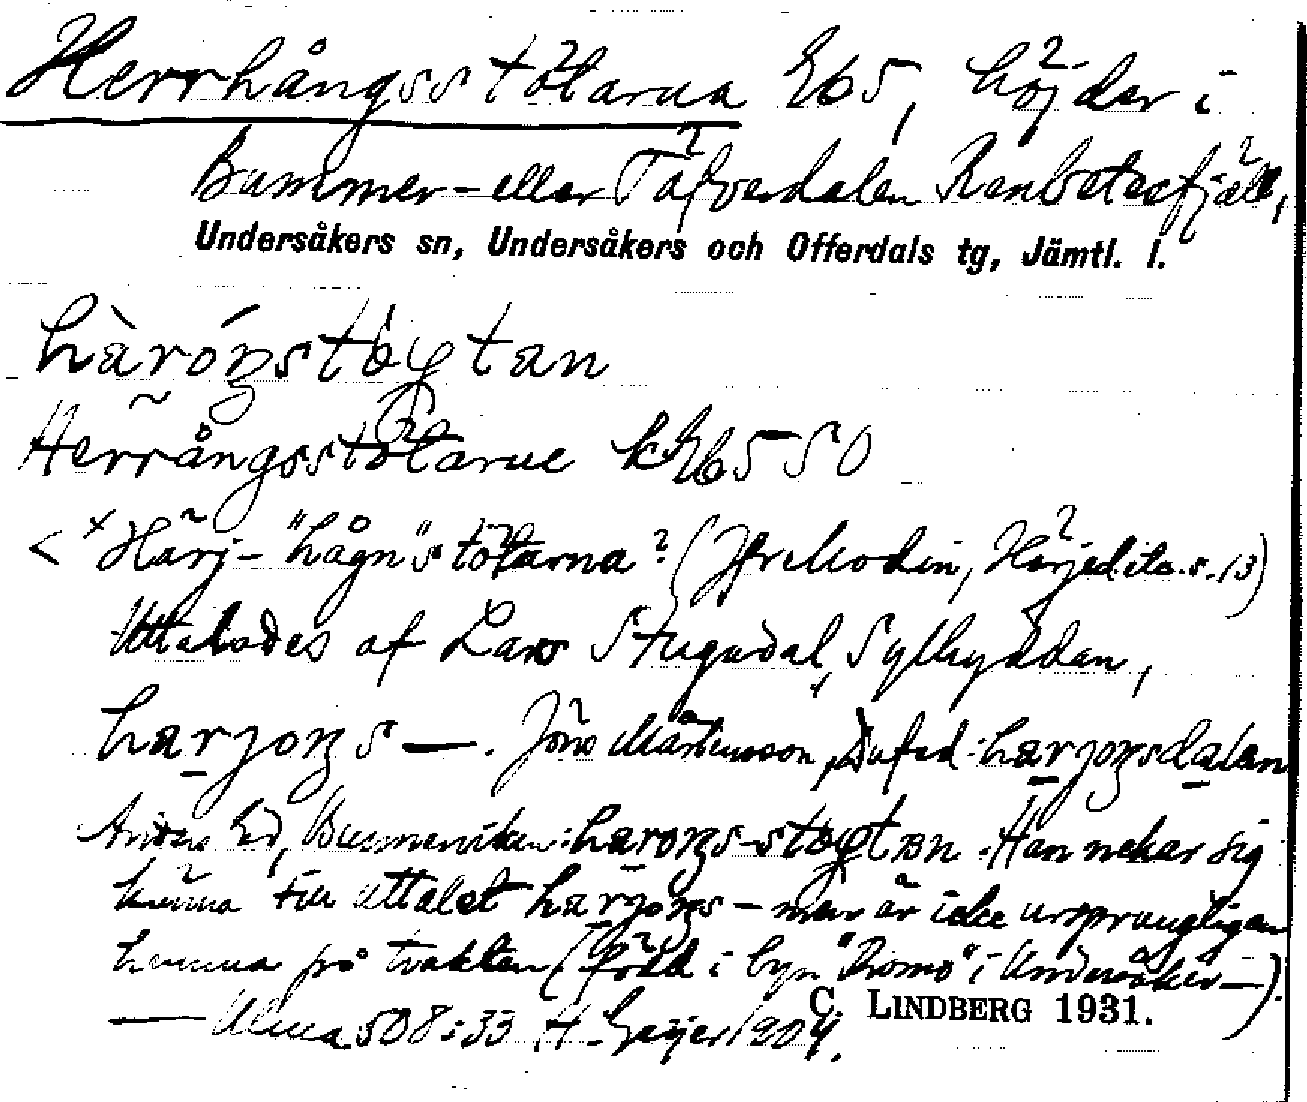 Herrhångsstötarna Eb5, höjder i
Bummer- eller Tåfverdalen Renbetesfjäll,
Undersåkers sn, Undersåkers och Offerdals tg, Jämtl. l.
hàróŋstøtan
Herrångsstötarne kEb5 SO
< ˣHärj- "hågn"s tötarna? (Jfr Modin, Härjedita. s. 13)
Uttalades af Lars Stugudal, Sylhyddan,
harjoŋs —. Jöns Mårtensson, : harjoŋsdalan
Anders Ed, : haroŋs-støtan. Han nekar sig
känna till uttalet harjoŋs – men är icke ursprungligen
hemma på trakten (född i byn "Romo" i Undersåker —).
— Ulma 508:33 H. Geijer 1904.
C. LINDBERG 1931.